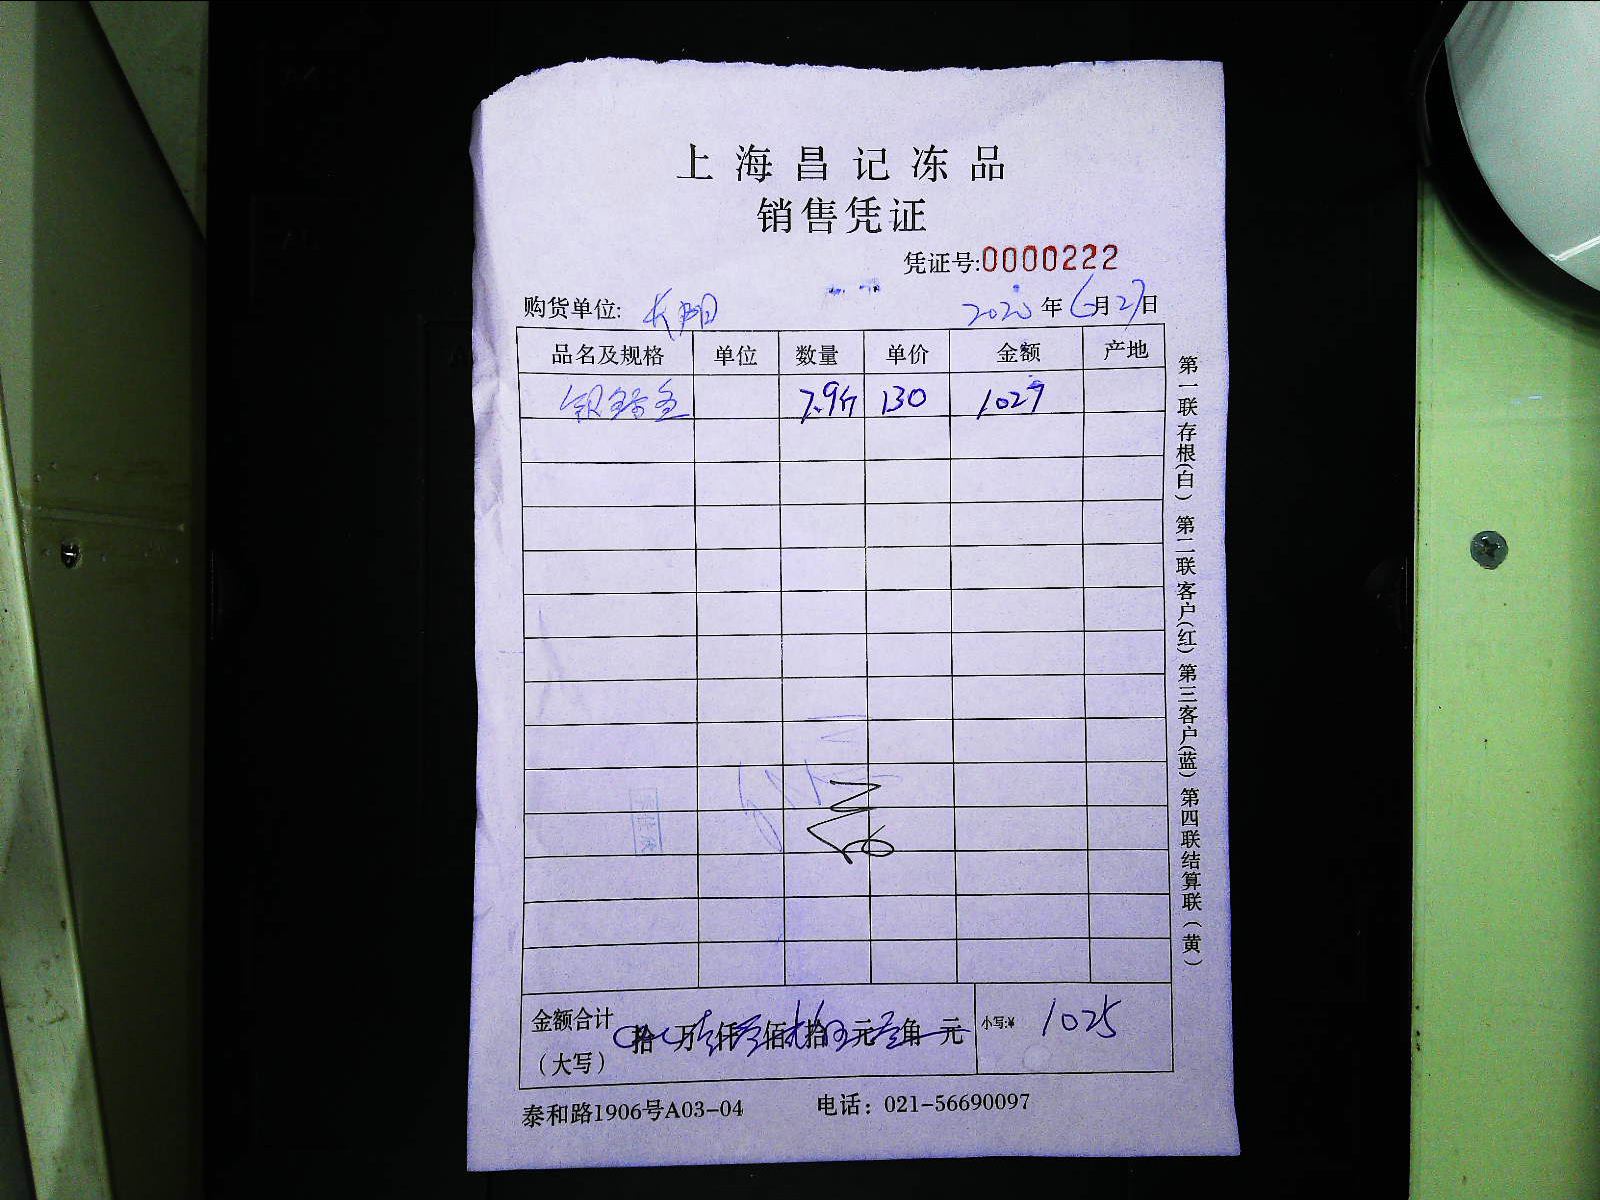 上海昌记冻品
销售凭证
凭证号:0000222
购货单位: 2020年6月27日
品名及规格 单位 数量 单价 金额 产地
银鳕鱼 7.9斤 130 1027
金额合计（大写） 拾 万 仟 佰 拾 元 角 元 小写:¥ 1025
泰和路1906号A03-04 电话：021-56690097
第一联存根(白) 第二联客户(红) 第三客户(蓝) 第四联结算联(黄)